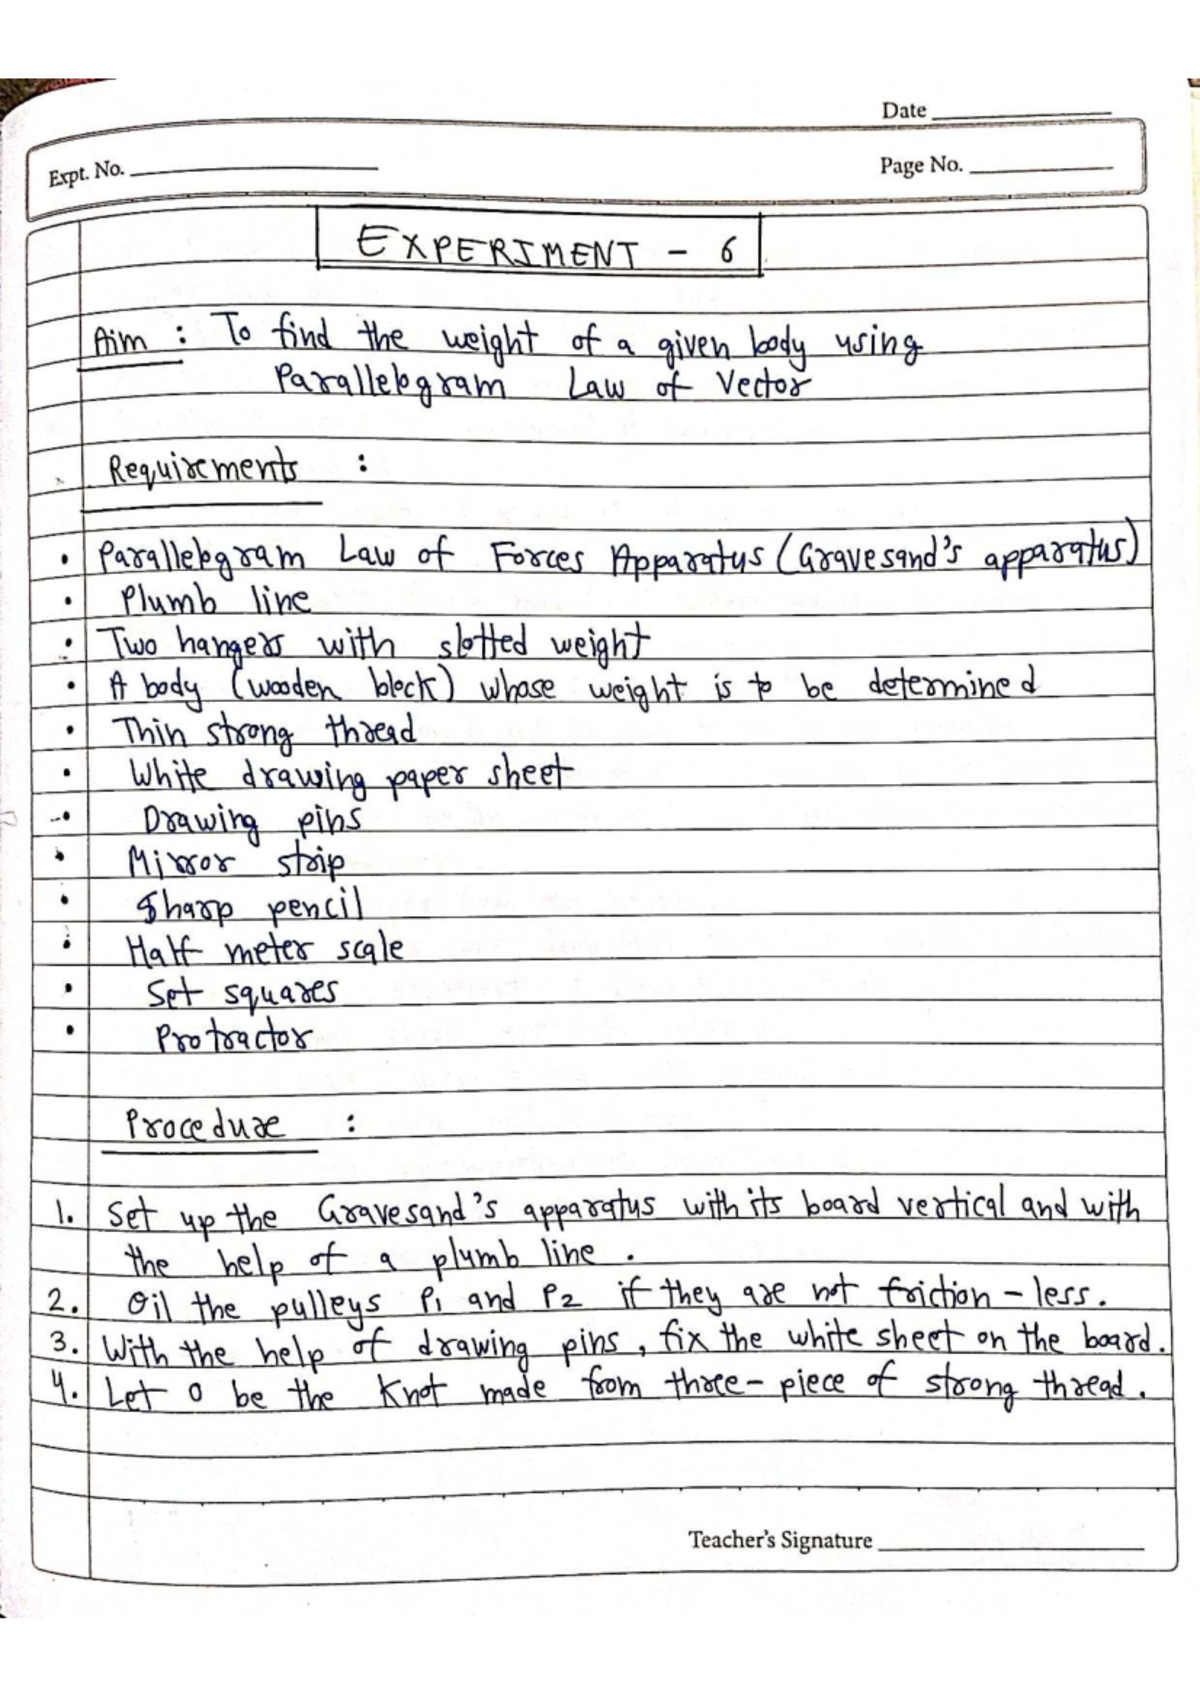 Date
Expt. No.
Page No.
EXPERIMENT - 6
Aim : To find the weight of a given body using
Parallelogram Law of Vector
Requirements :
• Parallelogram Law of Forces Apparatus (Gravesand's apparatus)
• Plumb line
• Two hangers with slotted weight
• A body (wooden block) whose weight is to be determined
• Thin strong thread
• White drawing paper sheet
• Drawing pins
• Mirror strip
• Sharp pencil
• Half meter scale
• Set squares
• Protractor
Procedure :
1. Set up the Gravesand's apparatus with its board vertical and with
the help of a plumb line .
2. Oil the pulleys P1 and P2 if they are not friction - less.
3. With the help of drawing pins, fix the white sheet on the board.
4. Let O be the Knot made from three - piece of strong thread.
Teacher's Signature